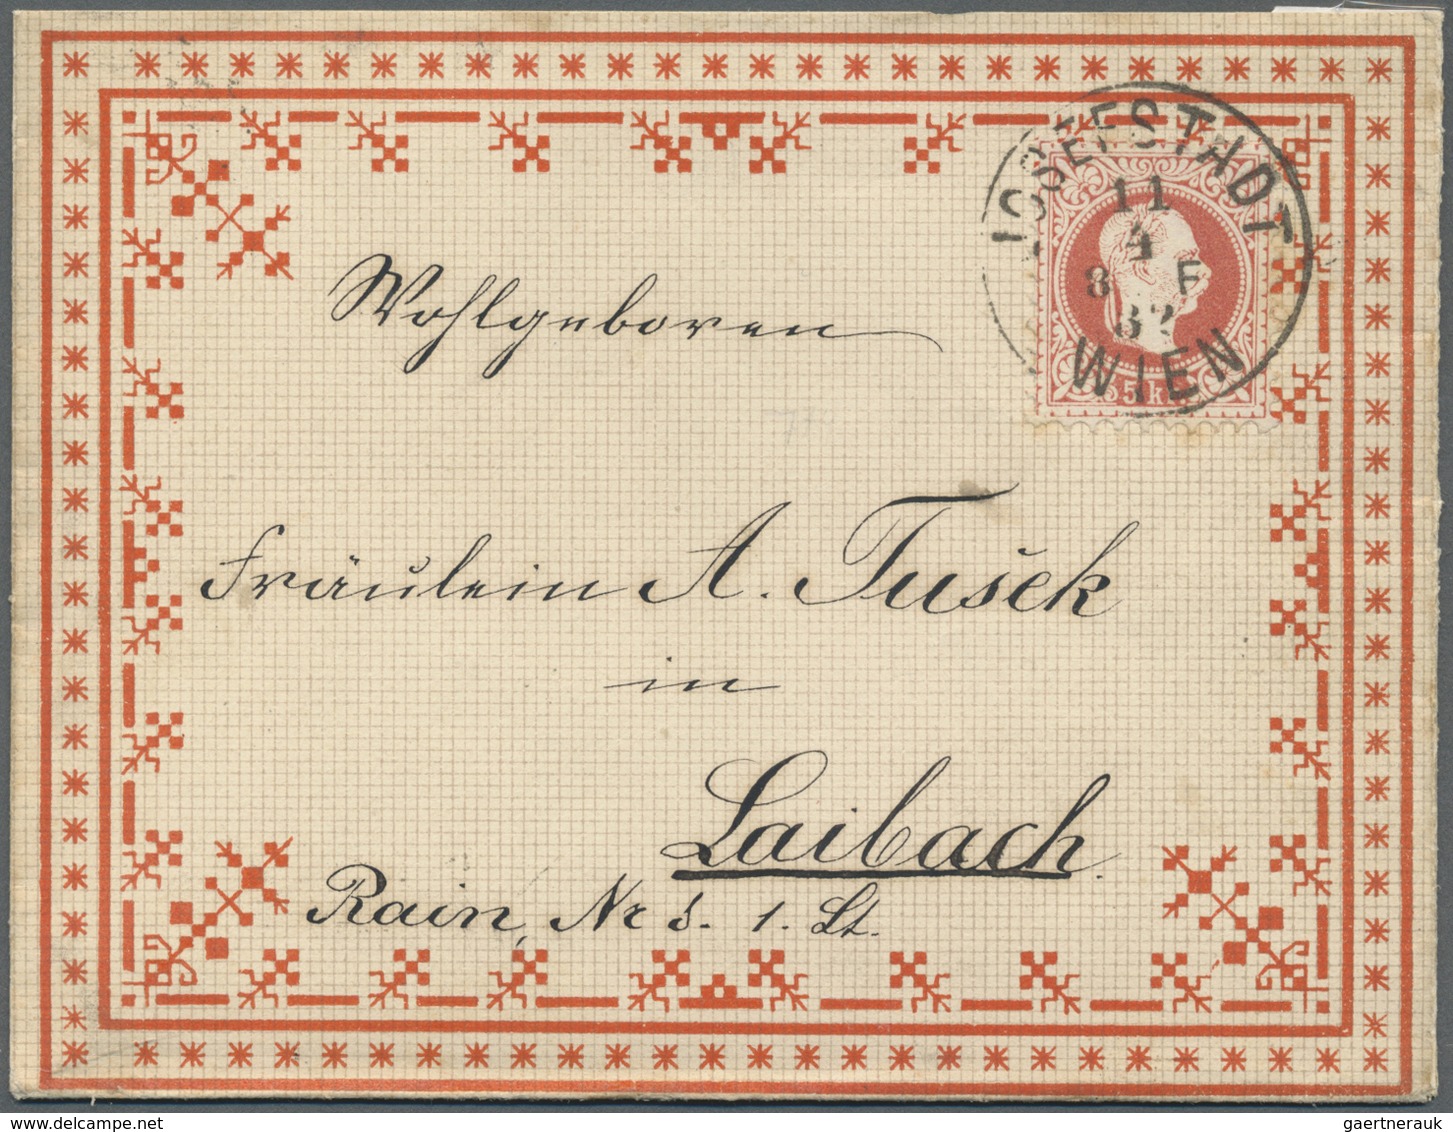 JOSEFSTADT
11
4
8 F
82
WIEN
5 kr
Wohlgeboren
Fräulein A. Tušek
in
Laibach.
Rain, Nr 1. Lt.
gaertnerauk